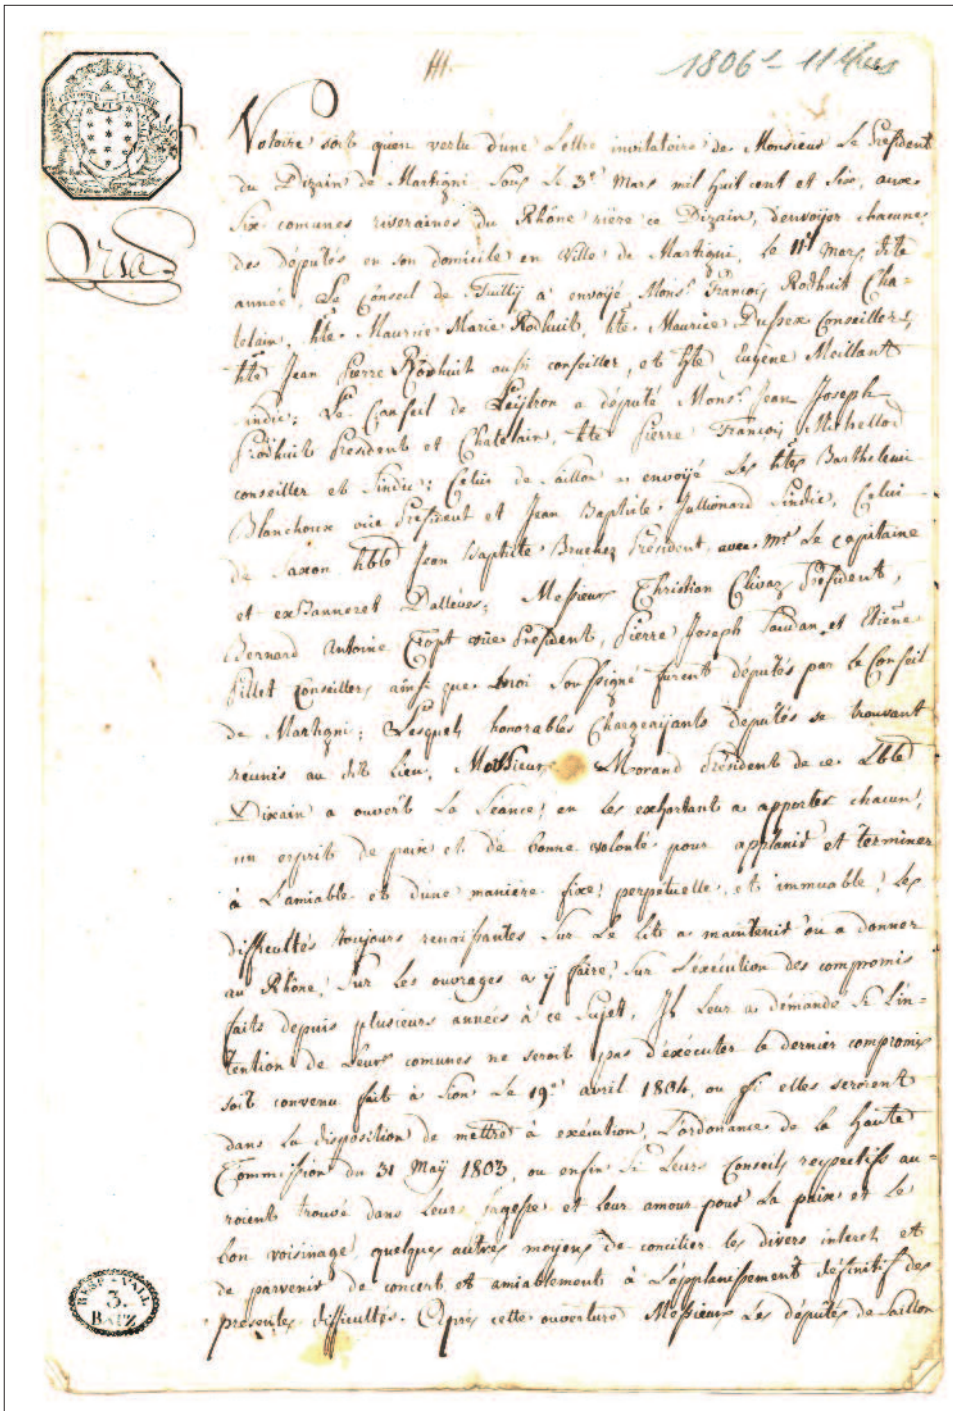 1806 - 11 Mars
Notoire soit qu'en vertu d'une Lettre invitatoire de Monsieur Le Président
du Dizain de Martigni Sous Le 3.e Mars mil huit cent et Six, aux
Six comunes riveraines du Rhône rière ce Dizain, d'envoÿer chacune
des députés en son domicile en Ville de Martigni, Le 11.e Mars dite
année, Le Conseil de Fullÿ a envoÿé Mons.r François Rodhuit Cha=
telain, hte. Maurice Marie Rodhuit, hte. Maurice Dussex Conseillers,
hte Jean Pierre Rodhuit aussi conseiller, et hte Eugène Meillant
sindic; Le Conseil de Leÿtron a député Mons.r Jean Joseph
Prodhuit Président et Chatelain, hte Pierre François Michellod
conseiller et Sindic; Celui de Saillon a envoÿé Les htes Barthelemi
Blanchoux vice Président et Jean Baptiste Jullionard Sindic, Celui
de Saxon Jean Baptiste Bruchez Président, avec Mr Le Capitaine
et exBanneret Dallèves; Messieurs Christian Clivaz Président,
Bernard Antoine Gopt vice Président, Pierre Joseph Saudan et Etiene
Pillet Conseillers ainsi que moi Soussigné furent députés par le Conseil
de Martigni; Lesquels honorables Chargeaÿants députés se trouvant
réunis au dit Lieu, Monsieur Morand Président de ce Lble
Dixain a ouvert La Séance, en Les exhortant a apporter chacun,
un esprit de paix et de bonne volonté pour applanir et terminer
à L'amiable et d'une manière fixe, perpétuelle, et immuable, Les
difficultés toujours renaissantes Sur Le Lit a maintenir ou a donner
au Rhône, Sur Les ouvrages a ÿ faire, Sur L'exécution des compromis
faits depuis plusieurs années à ce Sujet, Il Leur a démandé Si L'in=
tention de Leurs comunes ne seroit pas d'exécuter le dernier compromis
soit convenu fait à Sion Le 19.e avril 1804, ou si elles seroient
dans La disposition de mettre à exécution, L'ordonance de la haute
Commission du 31 Maÿ 1803, ou enfin Si Leurs Conseils respectifs au=
roient trouvé dans Leur sagesse et leur amour pour La paix et Le
bon voisinage, quelques autres moÿens de concilier les divers interets et
de parvenir de concert et amiablement à L'applanissement définitif des
presentes difficultés. Après cette ouverture Messieurs Les députés de Saillon
RESP. VALL
3.
BATZ